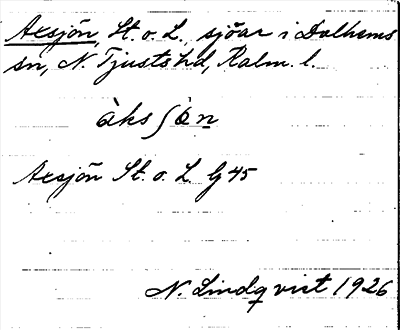 Axsjön, St. o. L., sjöar i Dalhems
sn, N. Tjusts hd, Kalm. l.
àksʃö̀n
Axsjön St. o. L. G 45
N. Lindqvist 1926